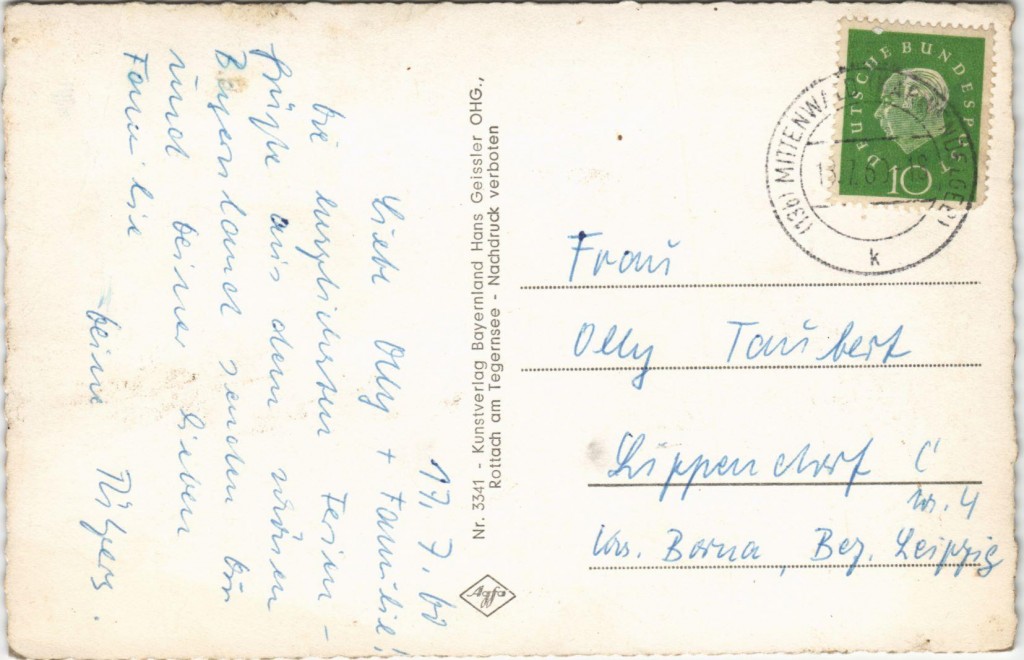 17. 7. 60
Liebe Olly + Familie!
Die herzlichsten Ferien-
grüße aus dem schönen
Bayernland senden Dir
und Deiner lieben
Familie
Deine
Nr. 3341 - Kunstverlag Bayernland Hans Geissler OHG.,
Rottach am Tegernsee - Nachdruck verboten
Agfa
DEUTSCHE BUNDESPOST
10
(13b) MITTENWALD
k
Frau
Olly Taubert
Lippendorf C
Nr. 4
Krs. Borna, Bez. Leipzig